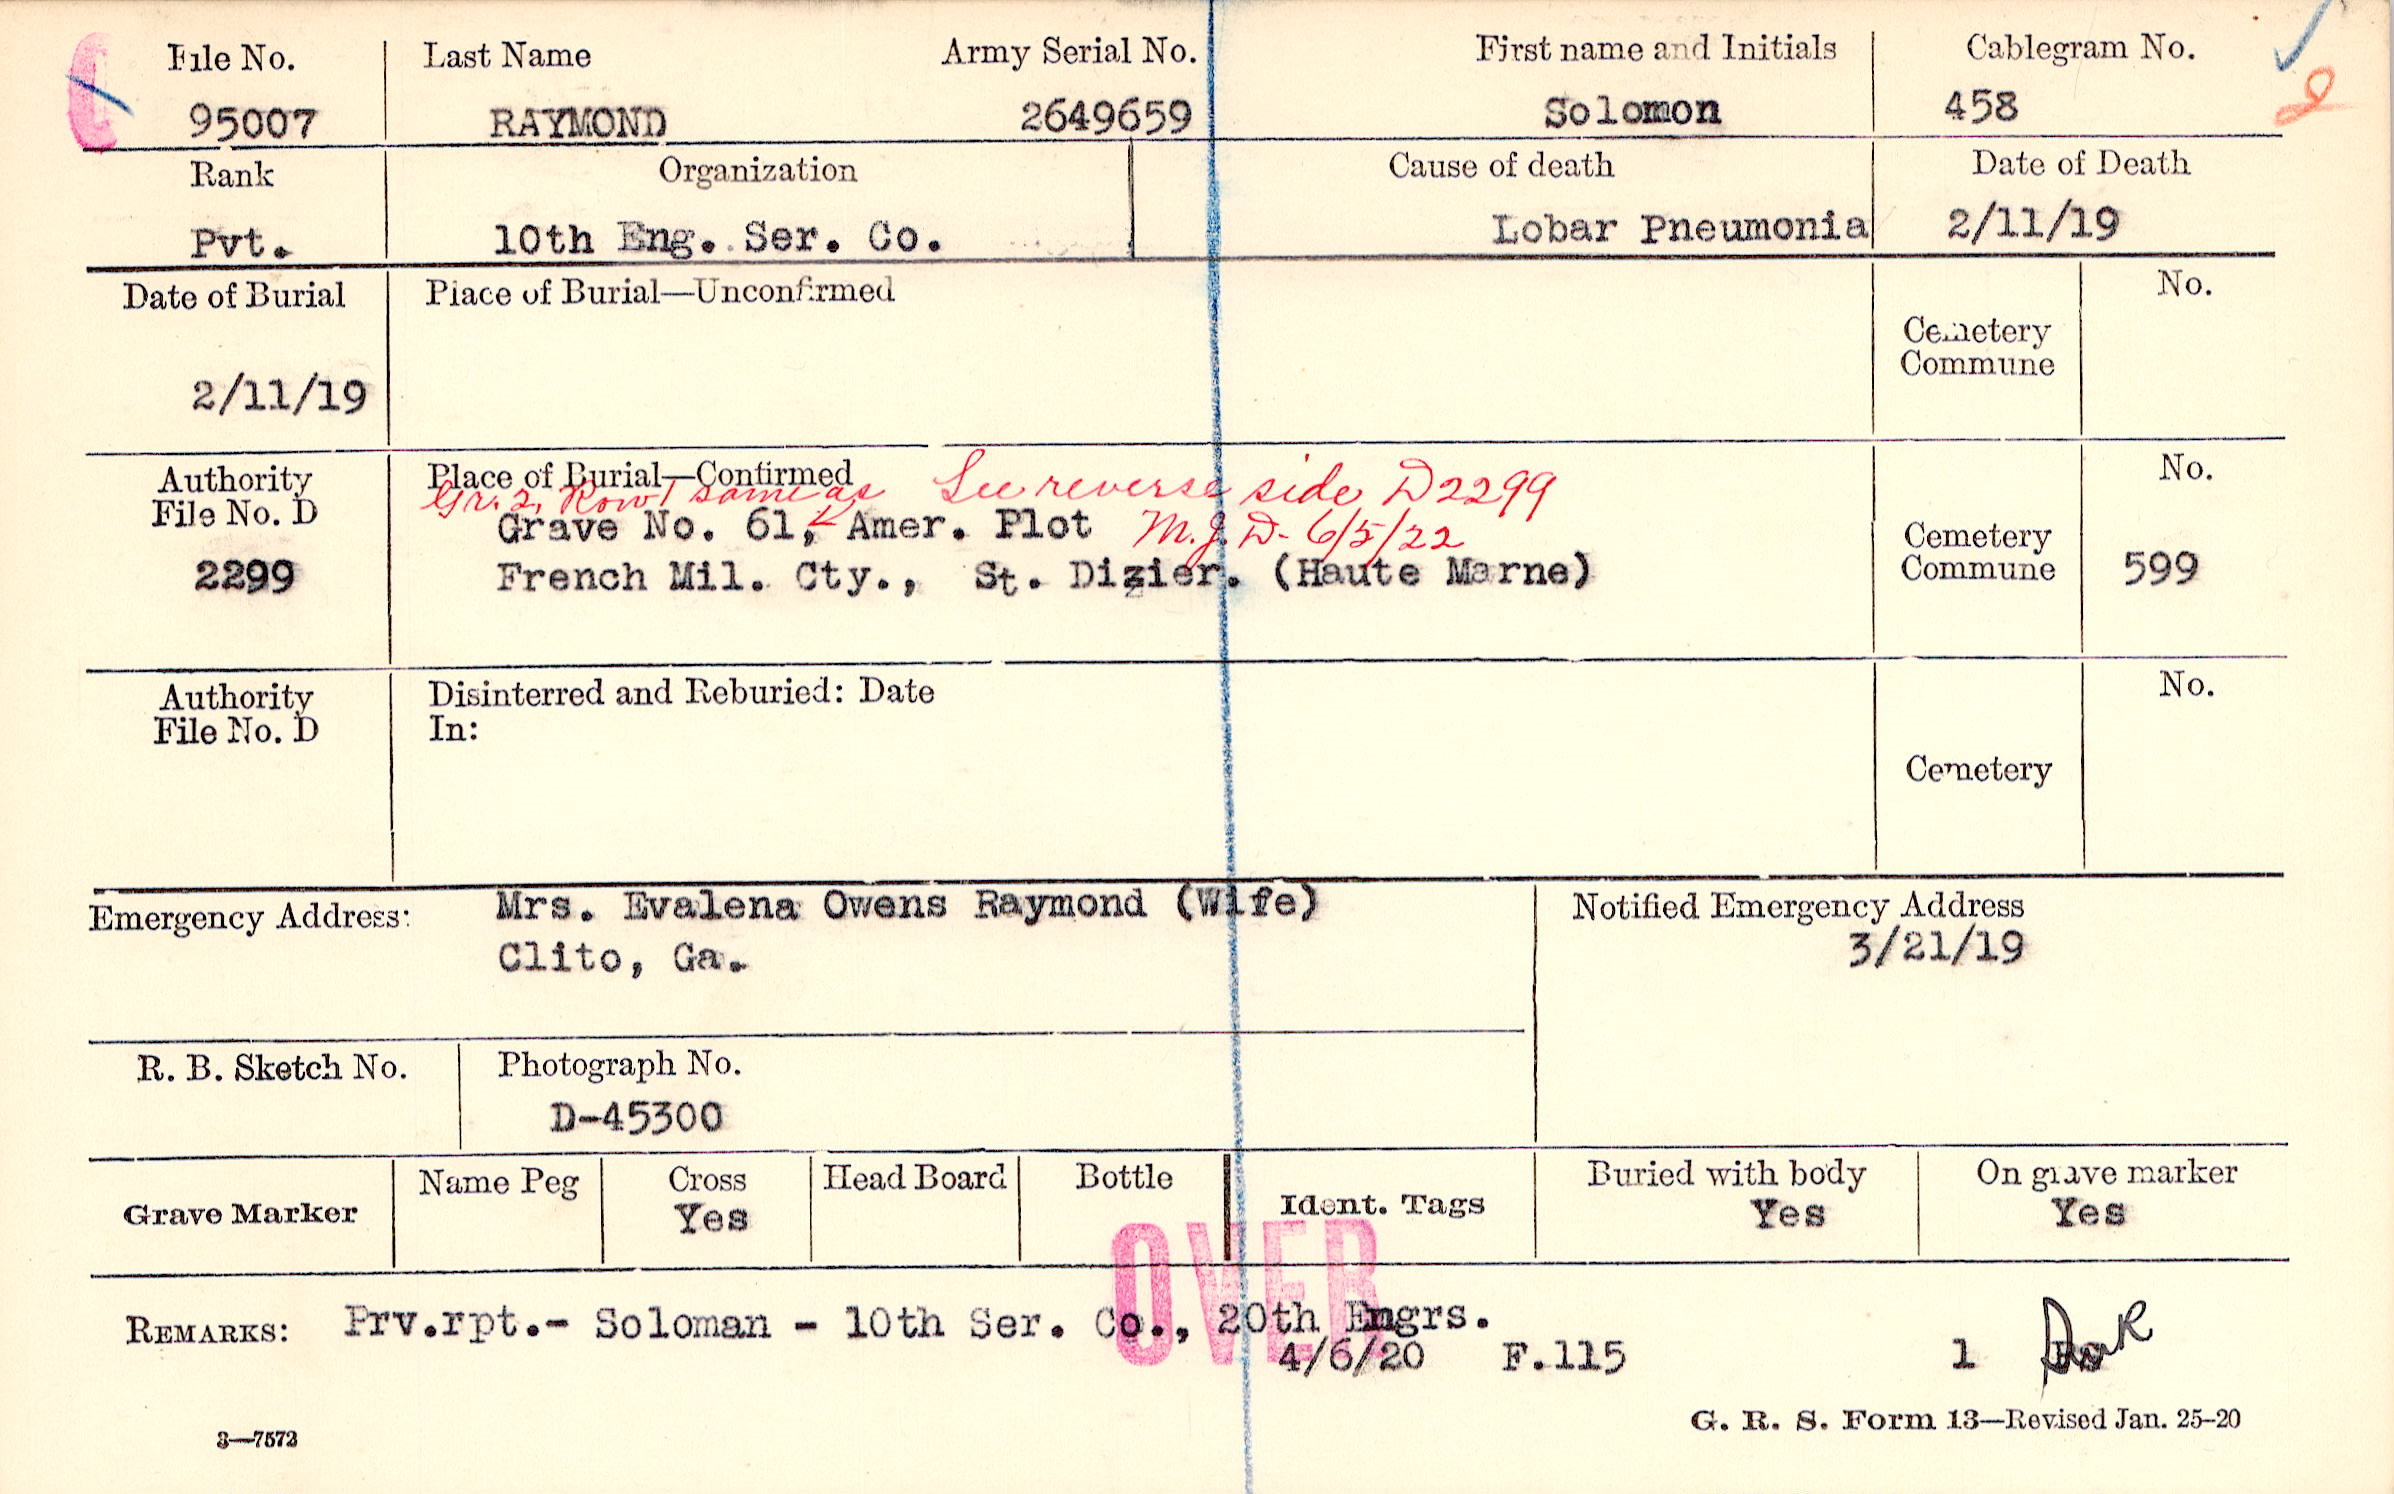 File No. Last Name Army Serial No. First name and Initials Cablegram No.
95007 RAYMOND 2649659 Solomon 458
Rank Organization Cause of death Date of Death
Pvt. 10th Eng. Ser. Co. Lobar Pneumonia 2/11/19
Date of Burial Place of Burial—Unconfirmed No.
Cemetery
Commune
2/11/19
Authority
File No. D
2299
Place of Burial—Confirmed See reverse side D2299
Gr. 2, Row 1 same as
Grave No. 61, Amer. Plot M.J.D- 6/5/22
French Mil. Cty., St. Dizier. (Haute Marne)
No.
Cemetery
Commune 599
Authority
File No. D
Disinterred and Reburied: Date
In:
No.
Cemetery
Emergency Address: Mrs. Evalena Owens Raymond (Wife)
Clito, Ga.
Notified Emergency Address
3/21/19
R. B. Sketch No. Photograph No.
D-45300
Grave Marker Name Peg Cross Head Board Bottle Ident. Tags Buried with body On grave marker
Yes Yes Yes
OVER
REMARKS: Prv.rpt.- Soloman - 10th Ser. Co., 20th Engrs.
4/6/20 F.115 1
G. R. S. Form 13—Revised Jan. 25-20
3—7572